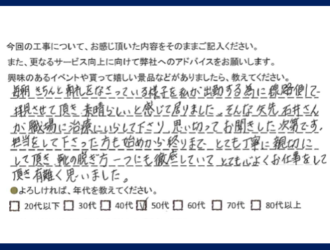 今回の工事について、お感じ頂いた内容をそのままご記入ください。
また、更なるサービス向上に向けて弊社へのアドバイスをお願いします。
興味のあるイベントや貰って嬉しい景品などがありましたら、教えてください。
毎朝きちんと朝礼をなさっている様子を私が出勤する為に線路側で
拝見させて頂き素晴らしいと感じて居りました。そんな矢先石井さん
が職場に治療にいらして下さり、思い切ってお聞きした次第です。
担当をして下さった方も始めから終りまで とても丁寧に親切に
して頂き、靴の脱ぎ方一つにも徹底していて とてもよくお仕事をして
頂き有難く思いました。
●よろしければ、年代を教えてください。
□20代以下 □30代 □40代 ☑50代 □60代 □70代 □80代以上